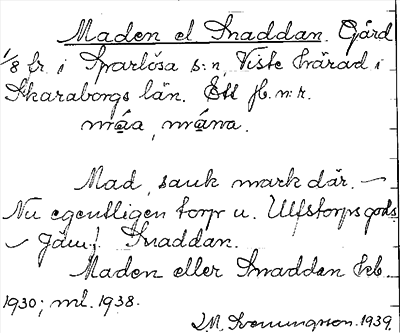 Maden el Snaddan. Gård
1/8 hr i Sparlösa s:n Viste härad i
Skaraborgs län. Ett jb. n:r.
måa, måna.
Mad, sank mark där. —
Nu egentligen torp u. Ulfstorps gods.
— Jämf. Snaddan.
Maden eller Snaddan Jeb.
1930; ml. 1938.
1939.